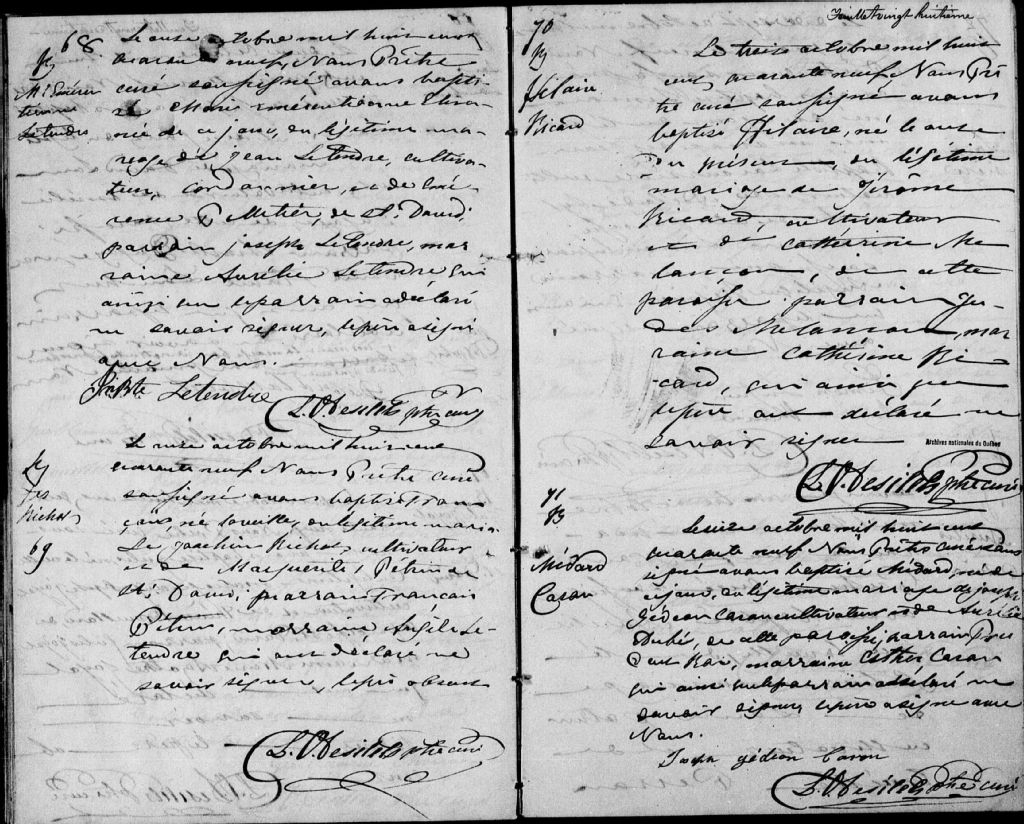 68
B
M. Émérentienne
Letendre
Le onze octobre mil huit cent
quarante neuf, Nous Prêtre
curé soussigné avons bapti-
sé Marie Émérentienne
née de ce jour, en légitime ma-
riage de Jean Letendre, cultiva-
teur, cordonnier, et de Émé-
rence Pelletier, de St. David,
parrain Joseph Letendre, mar
raine Aurélie Letendre qui
ainsi que le parrain a déclaré
ne savoir signer, le père a signé
avec Nous.
J. Bte Letendre
L. O. Desilets Ptre curé
B
Frs
Richot
69
Le onze octobre mil huit cent
quarante neuf, Nous Prêtre curé
soussigné avons baptisé Fran
çois, né la veille, en légitime maria-
ge de Joachim Richot, cultivateur
et de Marguerite Pétrin de
St. David, parrain Francois
Pétrin, marraine Angèle Le-
tendre qui ont déclaré ne
savoir signer, le père absent
L. O. Desilets Ptre curé
Feuillet vingt huitième
70
B
Hilaire
Ricard
Le treize octobre mil huit
cent quarante neuf, Nous Prê
tre curé soussigné avons
baptisé Hilaire, né le onze
du présent, en légitime
mariage de Jérôme
Ricard, cultivateur
et de Cathérine Me
lançon, de cette
paroisse parrain Ju-
des Melancon, mar
raine Cathérine Ri
card, qui ainsi que
le père ont déclaré ne
savoir signer
Archives nationales du Québec
L. O. Desilets Ptre curé
71
B
Médard
Caron
Le seize octobre mil huit cent
quarante neuf Nous Prêtre curé sous
signé avons baptisé Médard, né de
ce jour, en légitime mariage de Joseph
Gédéon Caron cultivateur et de Aurélie
Dubé, de cette paroisse, parrain
Roi, marraine Esther Caron
qui ainsi que le parrain a déclaré ne
savoir signer le père a signé avec
Nous.
Joseph gédéon Caron
L. O. Desilets Ptre curé